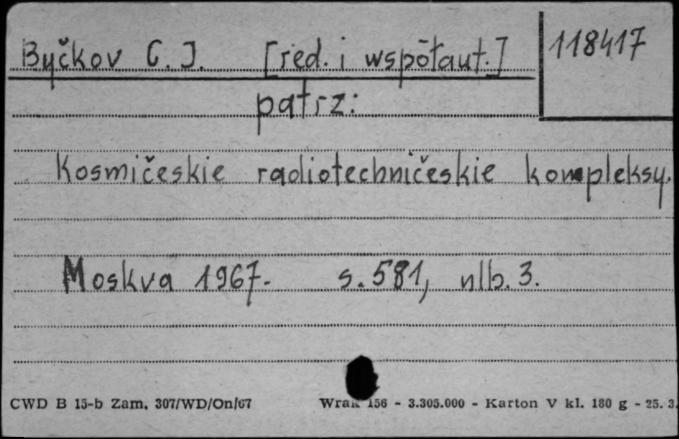 Byčkov C. J. [red. i wspōłaut.] 118417
patrz:
Kosmičeskie radiotechničeskie kompleksy.
Moskva 1967. s. 581, nlb. 3.
CWD B 15-b Zam. 307/WD/On/67 Wrak 156 - 3.305.000 - Karton V kl. 180 g - 25. 3.